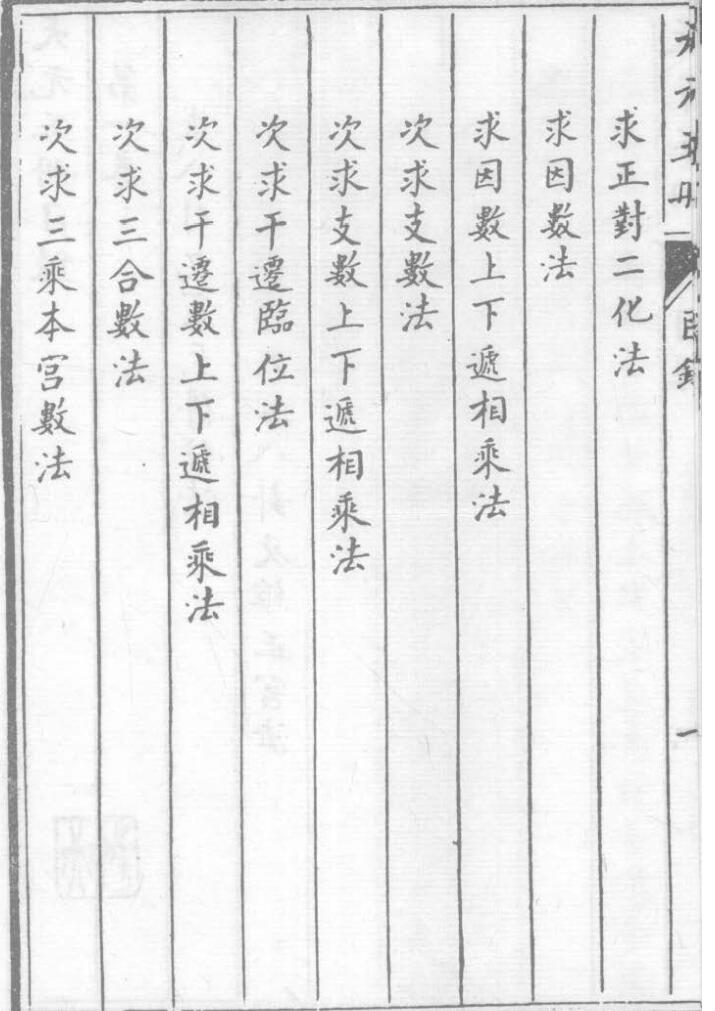 求正對二化法
求因數法
求因數上下遞相乘法
次求支數法
次求支數上下遞相乘法
次求干遷臨位法
次求干遷數上下遞相乘法
次求三合數法
次求三乘本宮數法
一